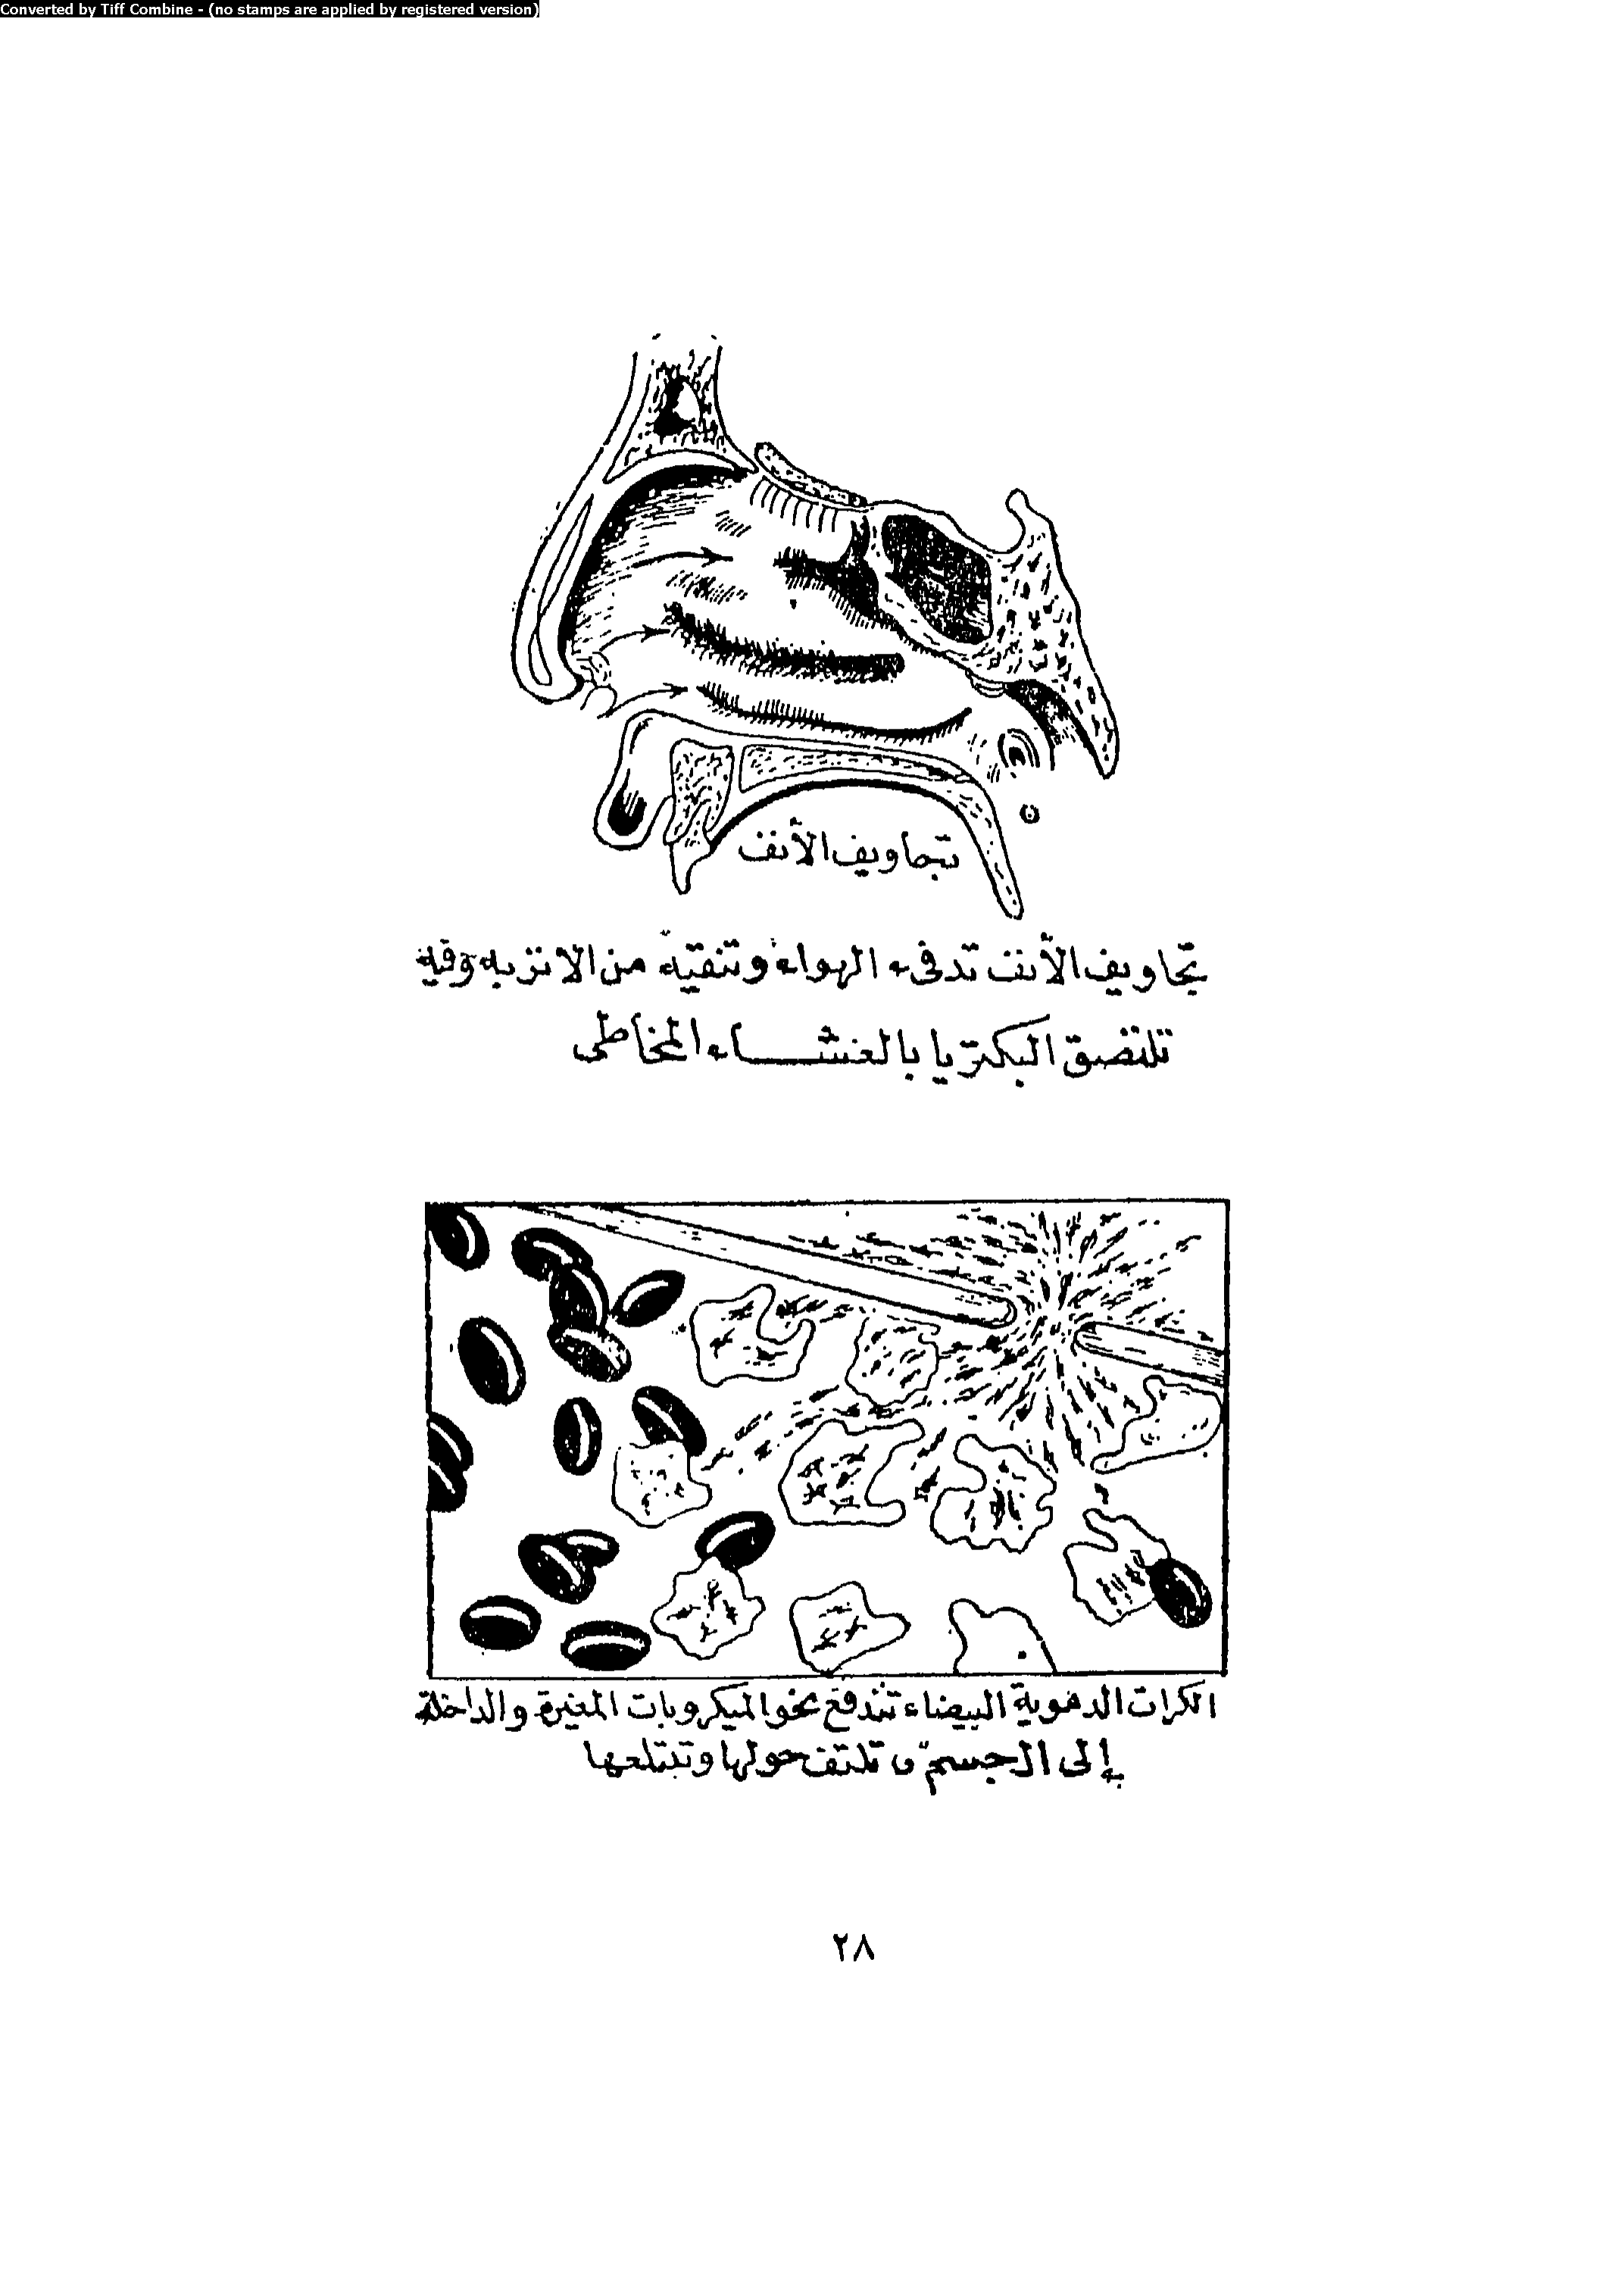 Converted by Tiff Combine - (no stamps are applied by registered version)
تجاويف الأنف
تجاويف الأنف تدفىء الهواء وتنقيه من الاتربه وفيه
تلتصق البكتريا بالغشاء المخاطى
الكرات الدموية البيضاء تندفع نحو الميكروبات المغيرة والداخلة
إلى الجسم و تلتف حولها وتبتلعها
٢٨